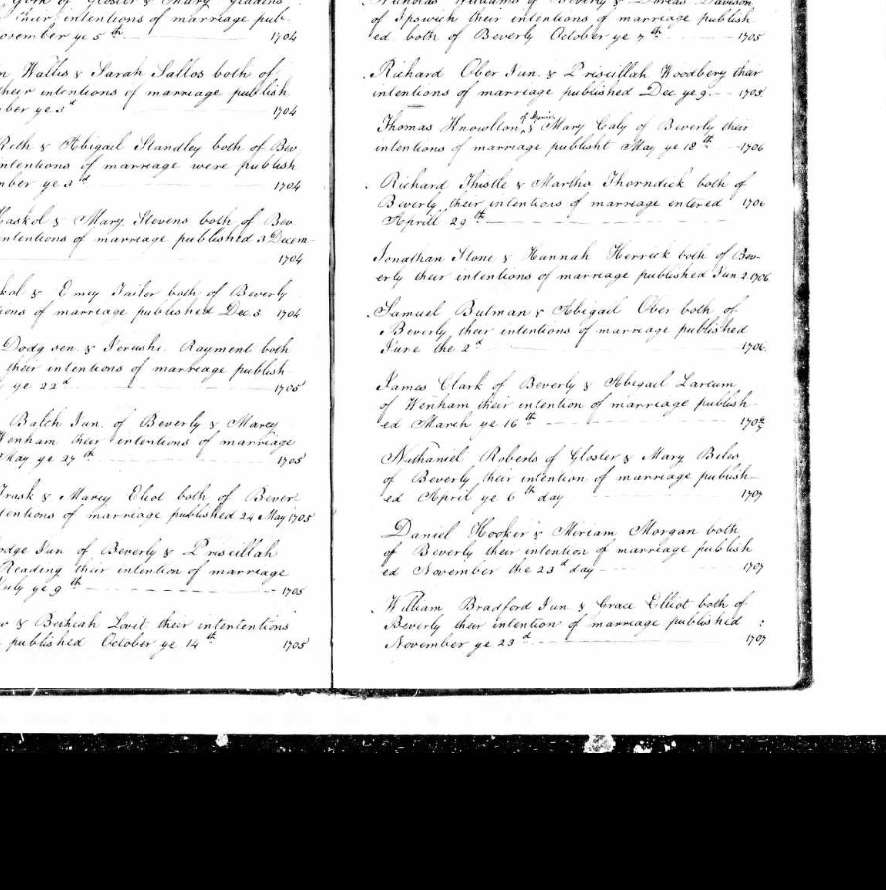 their intentions of marriage pub-
ovember ye 5th 1704
n Wallis & Sarah Sallos both of
their intentions of marriage publish
ber ye 3d 1704
Abigail Standley both of Bev
ntentions of marreage were publish
mber ye 3d 1704
askol & Mary Stevens both of Bev
ntentions of marriage published 3 Decem-
1704
kol & Emey Tailer both of Beverly
ions of marreage published Dec 3 1704
Dodg sen & Jerusha Rayment both
their intentions of marreage publish
ye 22d 1705
Balch Jun. of Beverly & Marcy
Wenham their intentions of marriage
May ye 27th 1705
Trask & Marcy Eliot both of Bever
tentions of marreage published 24 May 1705
odge Jun of Beverly & Priscillah
Reading their intention of marreage
July ye 9th 1705
& Bethiah Lovit their intententions
published October ye 14th 1705
Nicholas Williams of Beverly & Dorcas Davison
of Ipswich their intentions of marreage publish
ed both of Beverly October ye 7th 1705
Richard Ober Jun. & Priscillah Woodbery thar
intentions of marreage published Dec ye 9 1705
Thomas Knowlton & Mary Caly of Beverly their
intentions of marreage publisht May ye 18th 1706
Richard Thistle & Martha Thorndick both of
Beverly their intentions of marreage entered 1706
Aprill 29th
Jonathan Stone & Hannah Herrick both of Bev-
erly their intentions of marreage published Jun 2 1706
Samuel Butman & Abigail Ober both of
Beverly their intentions of marreage published
June the 2d 1706
James Clark of Beverly & Abigail Larcum
of Wenham their intention of marreage publish-
ed March ye 16th 1706/7
Nathaniel Roberts of Gloster & Mary Biles
of Beverly their intention of marreage publish
ed April ye 6th day 1707
Daniel Hooker & Miriam Morgan both
of Beverly their intention of marreage publish
ed November the 23d day 1707
William Bradford Jun & Grace Elliot both of
Beverly their intention of marreage published :
November ye 23d 1707